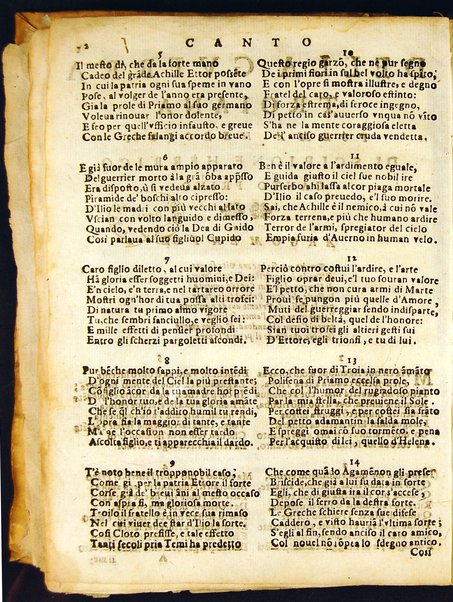 2 CANTO
5
Il mesto dì, che da la forte mano
Cadeo del grāde Achille Ettor possēte
In cui la patria ogni sua speme in vano
Pose, al volger de l'anno era presente,
Già la prole di Priamo al suo germano
Voleua rinouar l'onor dolente,
E feo per quell'vfficio infausto, e greue
Con le Greche falangi accordo breue.
6
E già fuor de le mura ampio apparato
Del guerrier morto à la grā ōba appsso
Era disposto, ù si vedeua alzato
Piramide de' boschi alto cipresso:
D'Ilio le madri con più vecchi alato
Vscian con volto languido e dimesso,
Quando, vedendo ciò la Dea di Gnido
Così parlaua al suo figliuol Cupido
7
Caro figlio diletto, al cui valore
Hà gloria esser soggetti huomini, e Dei:
E'n cielo, e'n terra, e nel tartareo orrore
Mostri ogn'hor di tua possa alti trofei:
Di natura tu primo almo vigore
Tu, che sembri fanciullo, e veglio sei:
E mille effetti di pensier profondi
Entro gli scherzi pargoletti ascondi.
8
Pur bēche molto sappi, e molto intēdi
D'ogni mente del Ciel la più prestante;
Consiglio ācor da la tua madre hor pēdi
D'l'honor tuo, e de la tua gloria amāte
Che se ql ch'io t'addito humil tu rendi,
L'opra fia la maggior di tante, e tante
Ma ue l'occasion non esser tardo
Ascolta figlio, e ti apparecchia il dardo.
9
T'è noto bene il troppo nobil caso,
Come già per la patria Ettore il forte
Corse già de' breui āni al mesto occaso
Con aspra sì, ma gloriosa morte.
Troilo il fratello è in vece sua rimaso
Nel cui viuer dee star d'Ilio la sorte.
Così Cloto prefisse, e tale effetto
Tanti secoli pria Temi ha predetto
10
Questo regio garzō, che nè pur segno
De i primi fiori in sul bel volto ha sparto,
E con l'opre si mostra illustre, e degno
Fratel del caro, e valoroso estinto:
Di forza estrema, di feroce ingegno,
Di petto in casi auuerso vnqua nō vīto
S'ha ne la mente coraggiosa eletta
De l'anciso guerrier cruda vendetta.
11
Ben è il valore a l'ardimento eguale,
E guida giusto il ciel sue nobil ire
Pur serbo ahi lassa al cor piaga mortale
D'Ilio il caso preuedo, e'l suo morire.
Sai, che Achille è il nemico, à cui nō vale
Forza terrena, e più che humano ardire
Terror de l'armi, spregiator del cielo
Empia furia d'Auerno in human velo.
12
Perciò contro costui l'ardire, e l'arte
Figlio oprar dei, e'l tuo souran valore
E'l petto, che non cura armi di Marte
Proui se pungon più quelle d'Amore,
Muti del guerreggiar sendo intepidito
Col desio di beltà, quel de l'honore:
Sian tuoi trofei gli altieri gesti sui
D'Ettore, egli trionfi, e tu di lui.
13
Ecco, che fuor di Troia in nero āmāto
Polisena di Priamo eccelsa prole,
Che col l'humor del rugiadoso pianto
Par la mia stella, che preuiene il Sole.
Per costei struggi, e per costei sia frāto
Del petto adamantin la salda mole,
E spreggi omai cō suo tormēto, e pena
Per l'acquisto di lei, quello d'Helena.
14
Che come quā lo Agamēnon gli prese
Briseide, che già a lui fu data in sorte
Egli, che di giusta ira il cor s'accese,
Depose il ferro da la destra forte.
Le Greche schiere senza sue difese
Caddero, e visto hauriā l'vltima sorte;
S'egli al fin, sendo anciso il caro amico,
Col nouel nō, ōpea lo sdegno antico.
Così